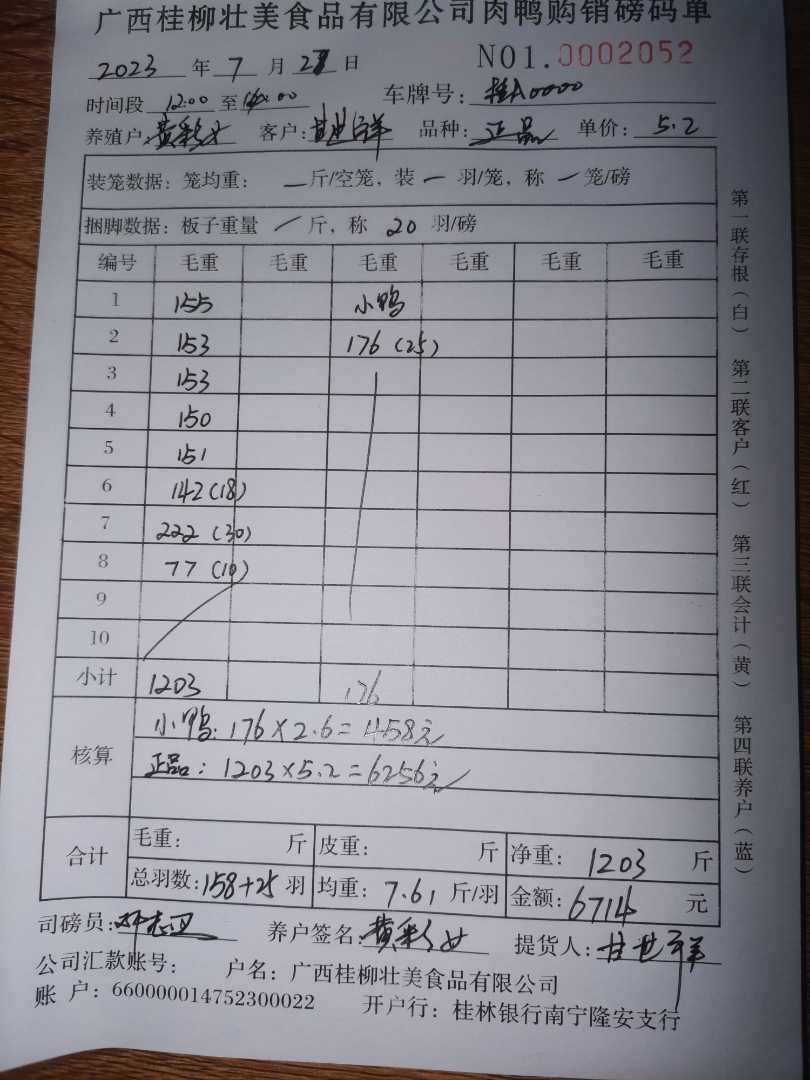 广西桂柳壮美食品有限公司肉鸭购销磅码单
2023 年 7 月 27 日 NO1.0002052
时间段 12:00 至 :00 车牌号: 桂A0000
养殖户: 黄彩女 客户: 甘世祥 品种: 正品 单价: 5.2
装笼数据: 笼均重: — 斤/空笼, 装 — 羽/笼, 称 — 笼/磅
捆脚数据: 板子重量 / 斤, 称 20 羽/磅
编号 毛重 毛重 毛重 毛重 毛重 毛重
1 155 小鸭
2 153 176 (25)
3 153
4 150
5 151
6 142 (18)
7 222 (30)
8 77 (10)
9
10
小计 1203 176
核算 小鸭: 176×2.6=458元
正品: 1203×5.2=6256元
合计 毛重: 斤 皮重: 斤 净重: 1203 斤
总羽数: 158+25 羽 均重: 7.61 斤/羽 金额: 6714 元
司磅员: 养户签名: 黄彩女 提货人: 甘世祥
公司汇款账号: 户名: 广西桂柳壮美食品有限公司
账 户: 660000014752300022 开户行: 桂林银行南宁隆安支行
第一联存根(白) 第二联客户(红) 第三联会计(黄) 第四联养户(蓝)